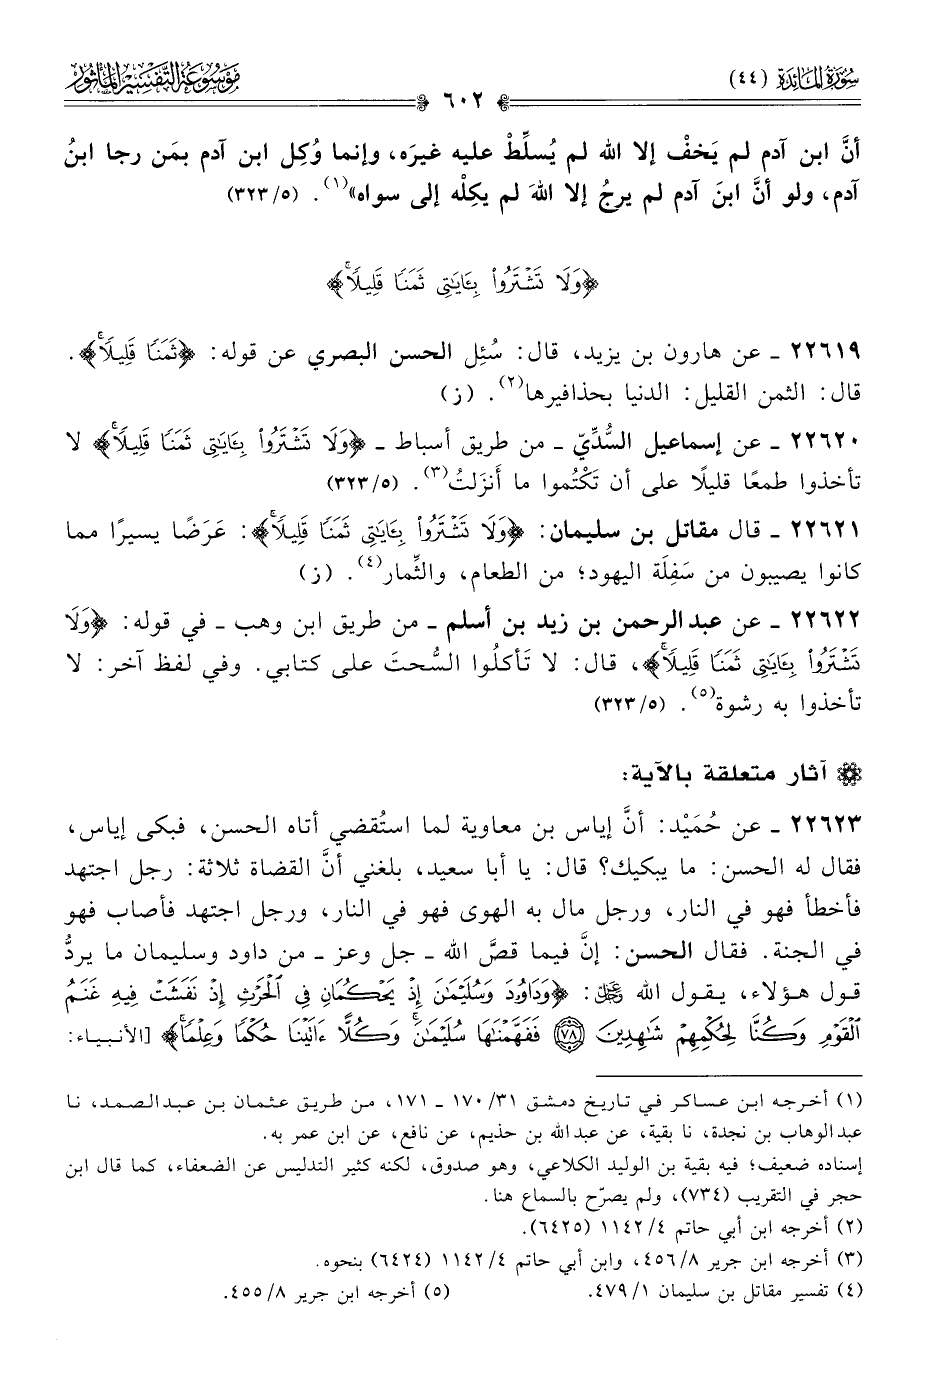 سُورَةُ المَائدَة (٤٤)
٦٠٢
مَوْسُوعَة التَّفْسِير المَأثُور
أنَّ ابن آدم لم يَخفْ إلا الله لم يُسلِّطْ عليه غيرَه، وإنما وُكِل ابن آدم بمَن رجا ابنُ
آدم، ولو أنَّ ابنَ آدم لم يرجُ إلا اللهَ لم يكِلْه إلى سواه»(١). (٣٢٣/٥)
﴿وَلَا تَشْتَرُوا۟ بِـَٔايَـٰتِى ثَمَنًا قَلِيلًا ۚ﴾
٢٢٦١٩ ـ عن هارون بن يزيد، قال: سُئِل الحسن البصري عن قوله: ﴿ثَمَنًا قَلِيلًا ۚ﴾.
قال: الثمن القليل: الدنيا بحذافيرها(٢). (ز)
٢٢٦٢٠ ـ عن إسماعيل السُّدِّيّ ـ من طريق أسباط ـ ﴿وَلَا تَشْتَرُوا۟ بِـَٔايَـٰتِى ثَمَنًا قَلِيلًا ۚ﴾ لا
تأخذوا طمعًا قليلًا على أن تَكْتُموا ما أَنزَلتُ(٣). (٣٢٣/٥)
٢٢٦٢١ ـ قال مقاتل بن سليمان: ﴿وَلَا تَشْتَرُوا۟ بِـَٔايَـٰتِى ثَمَنًا قَلِيلًا ۚ﴾: عَرَضًا يسيرًا مما
كانوا يصيبون من سَفِلَة اليهود؛ من الطعام، والثِّمار(٤). (ز)
٢٢٦٢٢ ـ عن عبد الرحمن بن زيد بن أسلم ـ من طريق ابن وهب ـ في قوله: ﴿وَلَا
تَشْتَرُوا۟ بِـَٔايَـٰتِى ثَمَنًا قَلِيلًا ۚ﴾، قال: لا تَأكلُوا السُّحتَ على كتابي. وفي لفظ آخر: لا
تأخذوا به رشوة(٥). (٣٢٣/٥)
آثار متعلقة بالآية:
٢٢٦٢٣ ـ عن حُمَيْد: أنَّ إياس بن معاوية لما استُقضي أتاه الحسن، فبكى إياس،
فقال له الحسن: ما يبكيك؟ قال: يا أبا سعيد، بلغني أنَّ القضاة ثلاثة: رجل اجتهد
فأخطأ فهو في النار، ورجل مال به الهوى فهو في النار، ورجل اجتهد فأصاب فهو
في الجنة. فقال الحسن: إنَّ فيما قصَّ الله ـ جل وعز ـ من داود وسليمان ما يردُّ
قول هؤلاء، يقول الله ﷻ: ﴿وَدَاوُۥدَ وَسُلَيْمَـٰنَ إِذْ يَحْكُمَانِ فِى ٱلْحَرْثِ إِذْ نَفَشَتْ فِيهِ غَنَمُ
ٱلْقَوْمِ وَكُنَّا لِحُكْمِهِمْ شَـٰهِدِينَ ٧٨ فَفَهَّمْنَـٰهَا سُلَيْمَـٰنَ ۚ وَكُلًّا ءَاتَيْنَا حُكْمًا وَعِلْمًا ۚ﴾ [الأنبياء:
(١) أخرجه ابن عساكر في تاريخ دمشق ٣١/ ١٧٠ ـ ١٧١، من طريق عثمان بن عبد الصمد، نا
عبد الوهاب بن نجدة، نا بقية، عن عبد الله بن حذيم، عن نافع، عن ابن عمر به.
إسناده ضعيف؛ فيه بقية بن الوليد الكلاعي، وهو صدوق، لكنه كثير التدليس عن الضعفاء، كما قال ابن
حجر في التقريب (٧٣٤)، ولم يصرّح بالسماع هنا.
(٢) أخرجه ابن أبي حاتم ٤/ ١١٤٢ (٦٤٢٥).
(٣) أخرجه ابن جرير ٨/ ٤٥٦، وابن أبي حاتم ٤/ ١١٤٢ (٦٤٢٤) بنحوه.
(٤) تفسير مقاتل بن سليمان ١/ ٤٧٩. (٥) أخرجه ابن جرير ٨/ ٤٥٥.